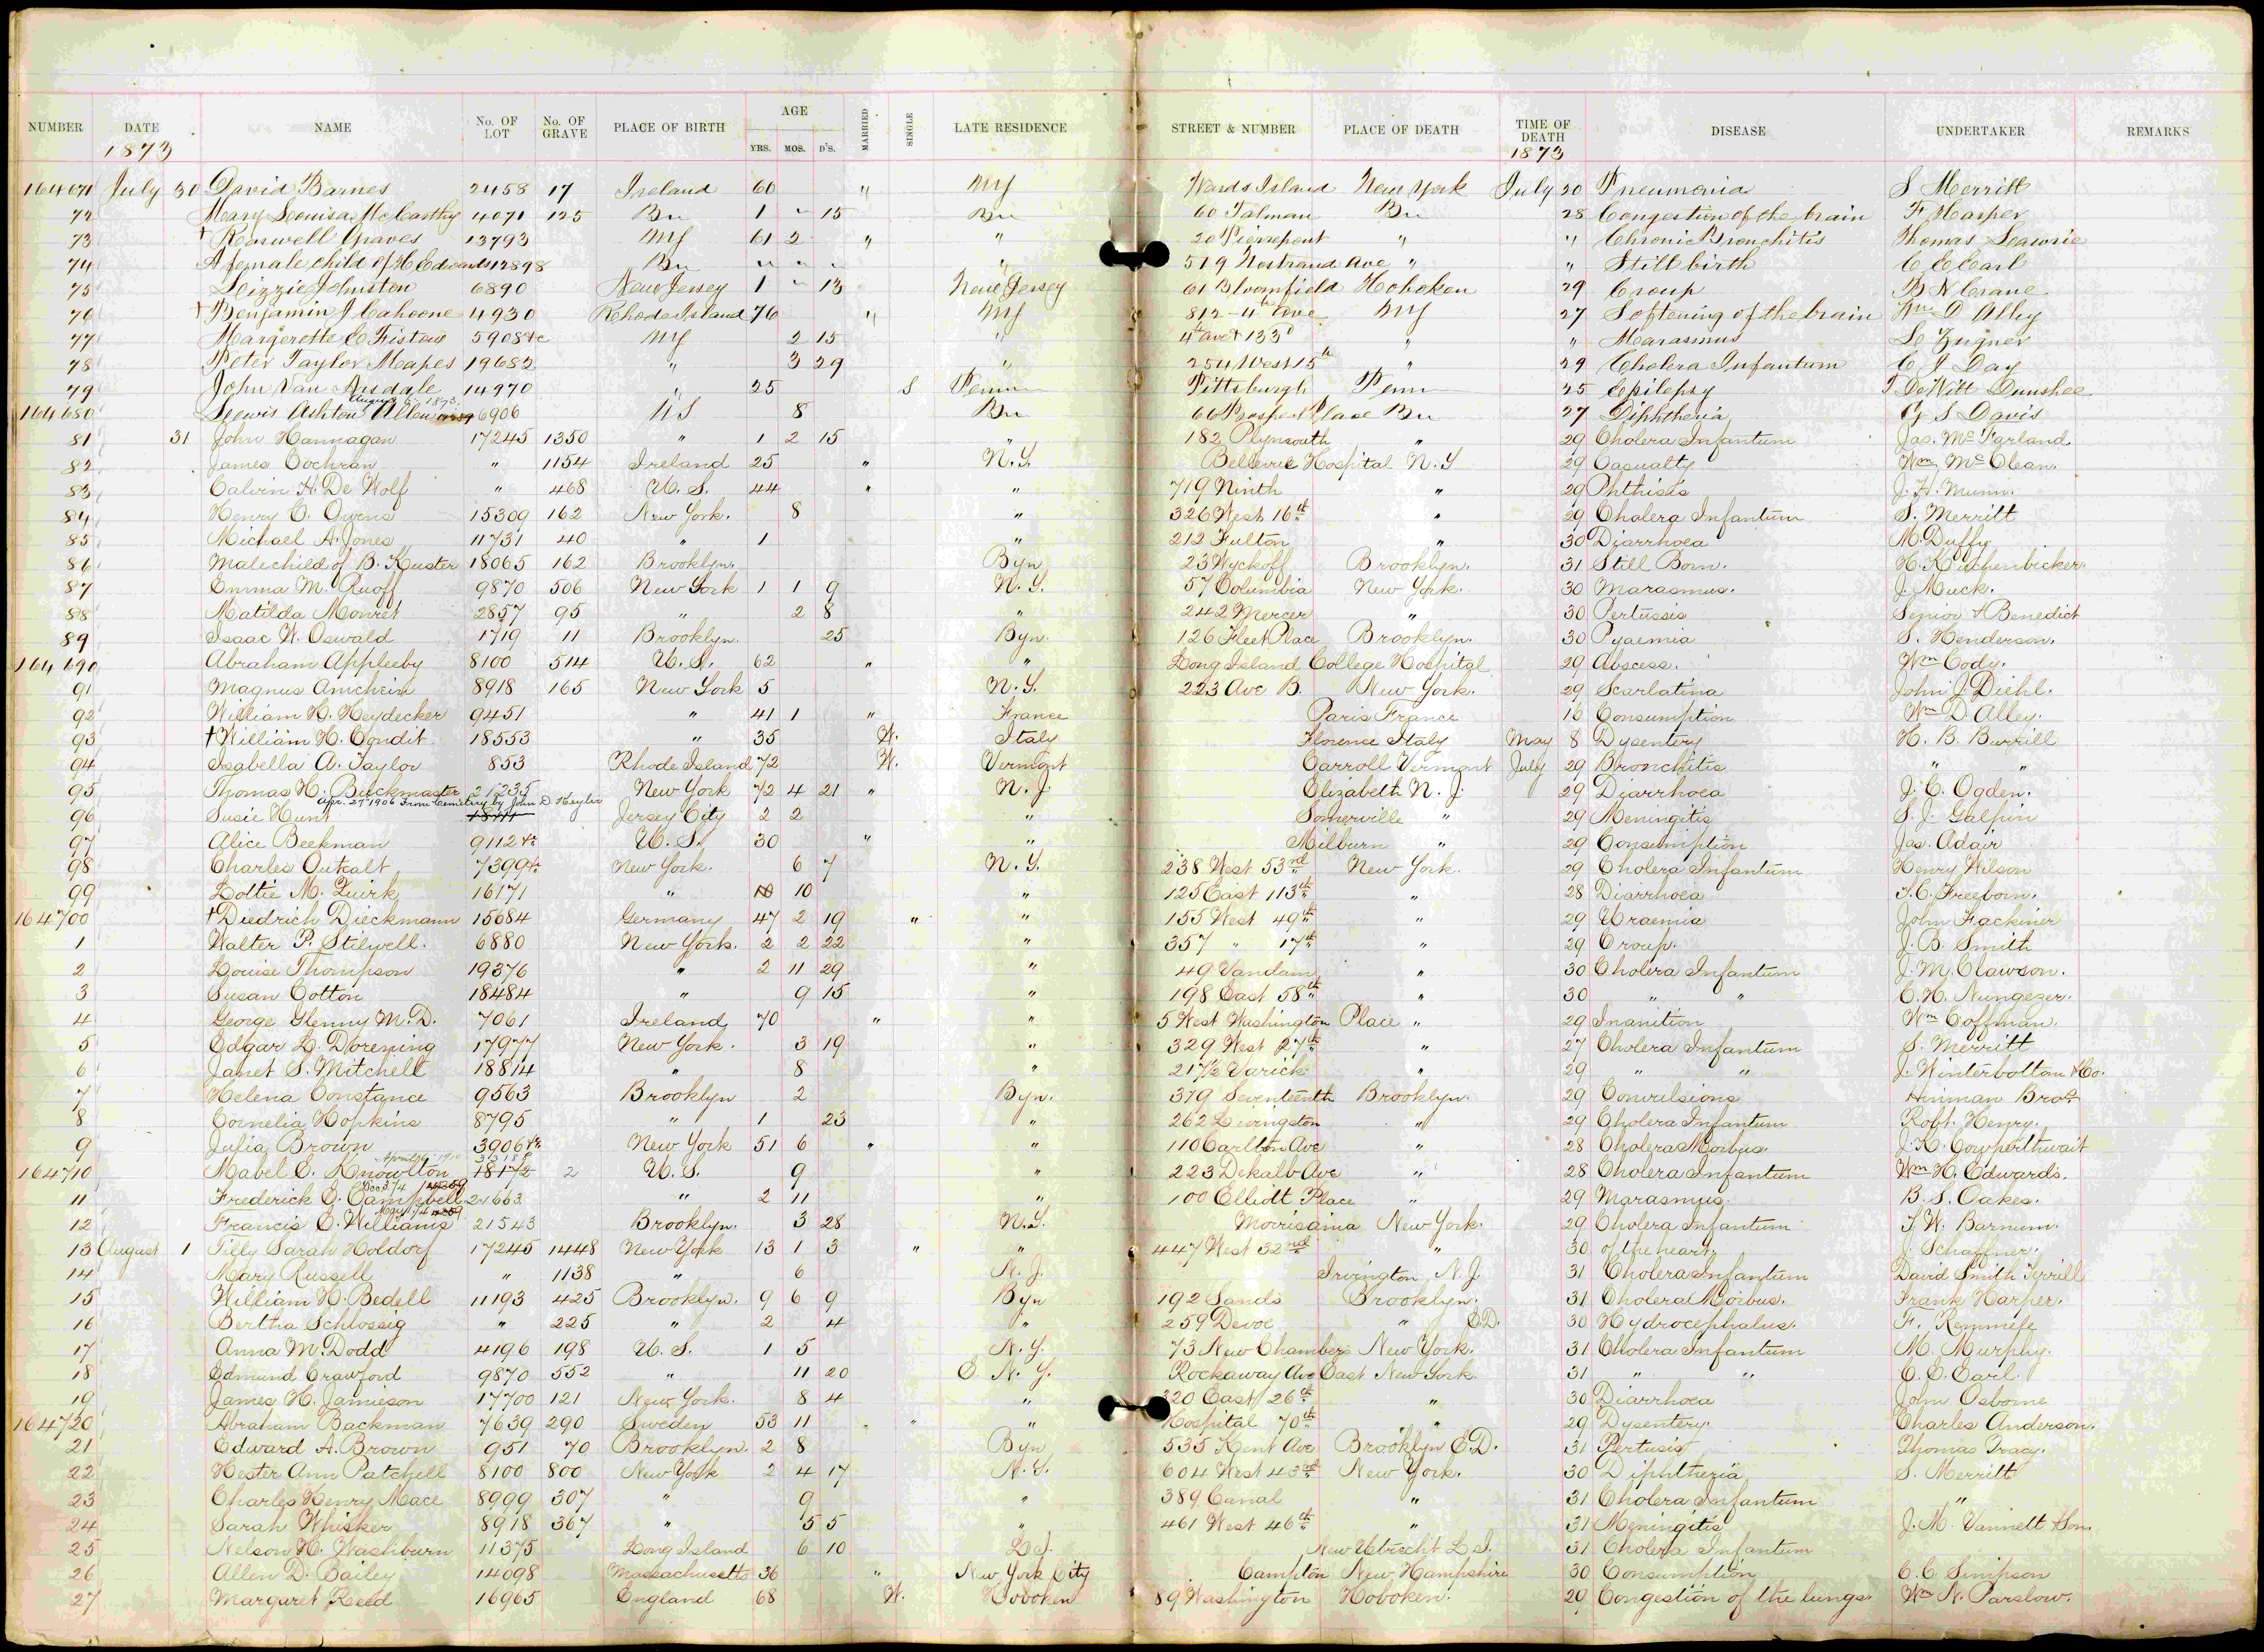 NUMBER DATE NAME No. OF LOT No. OF GRAVE PLACE OF BIRTH AGE YRS. MOS. D'S. MARRIED SINGLE LATE RESIDENCE STREET & NUMBER PLACE OF DEATH TIME OF DEATH DISEASE UNDERTAKER REMARKS
1873 1873
164671 July 30 David Barnes 2458 17 Ireland 60 " NY Wards Island New York July 20 Pneumonia S Merritt
72 Mary Louisa McCarthy 4071 125 Bn 1 " 15 Bn 60 Talman Bn 28 Congestion of the brain F Harper
73 † Roswell Graves 13793 NY 61 2 " " 20 Pierrepont " " Chronic Bronchitis Thomas
74 A female child of H Edwards 12898 Bn " " " " 519 Nostrand Ave " " Still birth C C Carl
75 Lizzie Johnston 6890 New Jersey 1 " 13 New Jersey 61 Bloomfield Hoboken 29 Croup B N Crane
76 † Benjamin J Cahoone 4930 Rhode Island 76 " NY 812 - 4th Ave NY 27 Softening of the brain Wm D Alley
77 Margerette C 5908 &c NY 2 15 " 4th ave & 133d " " Marasmus
78 Peter Taylor Mapes 19682 " 3 29 " 254 West 15th " 29 Cholera Infantum C J Day
79 John Van Arsdale 14970 " 25 S Penn Pittsburgh Penn 25 Epilepsy J DeWitt Dunshee
August 6. 1873.
164680 Lewis Ashton Allen 6906 US 8 Bn 66 Prospect Place Bn 27 Diphtheria G S Davis
81 31 John Hannagan 17245 1350 " 1 2 15 " 182 Plymouth " 29 Cholera Infantum Jas. McFarland
82 James Cochran " 1154 Ireland 25 " N.Y. Bellevue Hospital N.Y 29 Casualty Wm McClean.
83 Calvin H. De Wolf " 468 U.S. 44 " " 719 Ninth " 29 Phthisis J. H. Munn.
84 Henry C. Owens 15309 162 New York. 8 " 326 West 16th " 29 Cholera Infantum S. Merritt
85 Michael A. Jones 11731 40 " 1 " 212 Fulton " 30 Diarrhoea M. Duffy
86 Male child of B. Kuster 18065 162 Brooklyn. Byn 23 Wyckoff Brooklyn. 31 Still Born. H. Kuchenbecker.
87 Emma M. Ruoff 9870 506 New York 1 1 9 N.Y. 57 Columbia New York. 30 Marasmus. J. Muck.
88 Matilda Monret 2857 95 " 2 8 " 242 Mercer " 30 Pertussis Senior & Benedict
89 Isaac W. Oswald 1719 11 Brooklyn. 25 Byn. 126 Fleet Place Brooklyn. 30 Pyaemia S. Henderson.
164690 Abraham Appleeby 8100 514 U.S. 62 " " Long Island College Hospital 29 Abscess. Wm Cody.
91 Magnus Arnchein 8918 165 New York 5 N.Y. 223 Ave B. New York. 29 Scarlatina John J. Diehl.
92 William H. Heydecker 9451 " 41 1 " France Paris France 16 Consumption Wm D. Alley.
93 † William H. Condit 18553 " 35 W. Italy Florence Italy May 8 Dysentery H. B. Burrill
94 Isabella A. Taylor 853 Rhode Island 72 W. Vermont Carroll Vermont July 29 Bronchitis " "
95 Thomas H. Buckmaster 21235 New York 72 4 21 " N.J. Elizabeth N.J. 29 Diarrhoea J. C. Ogden.
Apr. 27th 1906 From Cemetery by John D Heyler
96 Susie Hunt Jersey City 2 2 " Somerville " 29 Meningitis S. J. Galpin
97 Alice Beekman 9112 &c U.S. 30 " " Milburn " 29 Consumption Jas. Adair
98 Charles Outcalt 7399 &c New York. 6 7 N.Y. 238 West 53rd New York. 29 Cholera Infantum Henry Wilson
99 Lottie M. Quirk 16171 " 10 " 125 East 113th " 28 Diarrhoea T. C. Freeborn.
164700 † Diedrich Dieckmann 15684 Germany 47 2 19 " " 155 West 49th " 29 Uraemia John Fackiner
1 Walter P. Stilwell. 6880 New York. 2 2 22 " 357 " 17th " 29 Croup. J. B. Smith
2 Louise Thompson 19376 " 2 11 29 " 49 Vandam " 30 Cholera Infantum J. M. Clawson.
3 Susan Cotton 18484 " 9 15 " 198 East 58th " 30 " " C. H. Nungezer.
4 George Glenny M.D. 7061 Ireland 70 " " 5 West Washington Place " 29 Inanition Wm Coffman.
5 Edgar L. Dorening 17977 New York. 3 19 " 329 West 27th " 27 Cholera Infantum S. Merritt
6 Janet S. Mitchell 18814 " 8 " 217½ Varick " 29 " " J. Winterbottom & Co.
7 Helena Constance 9563 Brooklyn 2 Byn. 319 Seventeenth Brooklyn. 29 Convulsions Hinman Bros
8 Cornelia Hopkins 8795 " 1 23 " 262 Livingston " 29 Cholera Infantum Robt. Henry.
9 Julia Brown 3906 &c New York 51 6 " " 110 Carlton Ave " 28 Cholera Morbus. J. H. Cowperthwait
April 1910 31318
164710 Mabel E. Knowlton 18172 2 U.S. 9 " 223 Dekalb Ave " 28 Cholera Infantum Wm H. Edwards.
Dec 3 74
11 Frederick G. Campbell 21663 " 2 11 " 100 Elliott Place " 29 Marasmus. B. S. Oakes.
12 Francis C. Williams 21543 Brooklyn. 3 28 N.Y. Morrisania New York. 29 Cholera Infantum T. W. Barnum.
13 August 1 Tilly Sarah Holdorf 17245 1448 New York 13 1 3 " " 447 West 32nd " 30 of the heart J. Schaffner.
14 Mary Russell " 1138 " 6 N.J. Irvington N.J. 31 Cholera Infantum David Smith Tyrrill
15 William H. Bedell 11193 425 Brooklyn. 9 6 9 Byn 192 Sands Brooklyn. 31 Cholera Morbus. Frank Harper.
16 Bertha Schlossig " 225 " 2 4 " 259 Devoe " E.D. 30 Hydrocephalus. F. Remmele
17 Anna M. Dodd 4196 198 U.S. 1 5 N.Y. 73 New Chambers New York. 31 Cholera Infantum M. Murphy.
18 Edmund Crawford 9870 552 " 11 20 E. N.Y. Rockaway Ave East New York 31 " " C. C. Carl.
19 James H. Jamieson 17700 121 New York. 8 4 " 320 East 26th " 30 Diarrhoea John Osborne
164720 Abraham Backman 7639 290 Sweden 53 11 " " Hospital 70th " 29 Dysentery. Charles Anderson.
21 Edward A. Brown 951 70 Brooklyn. 2 8 Byn 535 Kent Ave Brooklyn E.D. 31 Pertusis Thomas Tracy.
22 Hester Ann Patchell 8100 800 New York 2 4 17 N.Y. 604 West 43rd New York. 30 Diphtheria S. Merritt
23 Charles Henry Mace 8999 307 " 9 " 389 Canal " 31 Cholera Infantum "
24 Sarah Whisker 8918 367 " 5 5 " 461 West 46th " 31 Meningitis J. M. Vannett & Son.
25 Nelson H. Washburn 11375 Long Island 6 10 L.I. New Utrecht L.I. 31 Cholera Infantum
26 Allen D. Bailey 14098 Massachusetts 36 " New York City Campton New Hampshire 30 Consumption C. C. Simpson
27 Margaret Reed 16965 England 68 W. Hoboken 89 Washington Hoboken. 29 Congestion of the lungs. Wm N. Parslow.